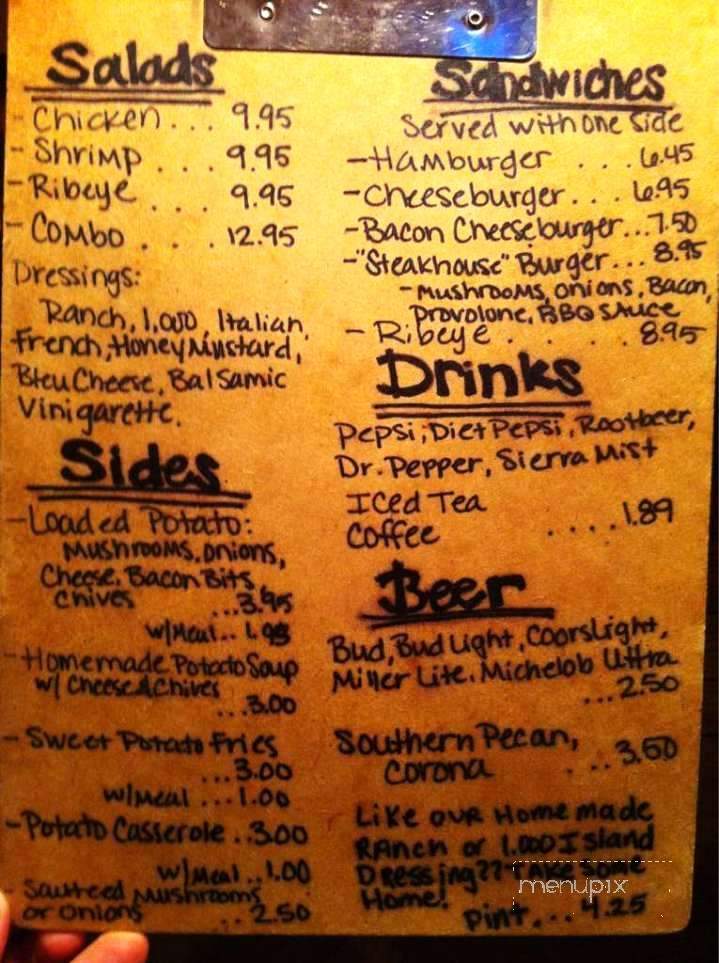 Salads
- Chicken... 9.95
- Shrimp ... 9.95
- Ribeye ... 9.95
- Combo ... 12.95
Dressings:
Ranch, 1,000, Italian,
French, Honey Mustard,
Bleu Cheese, Balsamic
Vinigarette.
Sides
- Loaded Potato:
Mushrooms, onions,
Cheese, Bacon Bits,
Chives
...3.95
w/Meal.. 1.95
- Homemade Potato Soup
w/ Cheese & Chives
...3.00
- Sweet Potato Fries
...3.00
w/meal ...1.00
- Potato Casserole ..3.00
w/Meal ..1.00
Sauteed Mushrooms
or onions ... 2.50
Sandwiches
Served with one side
- Hamburger ... 6.45
- Cheeseburger... 6.95
- Bacon Cheeseburger...7.50
- "Steakhouse" Burger... 8.95
- Mushrooms, onions, Bacon,
Provolone, BBQ Sauce
- Ribeye ..... 8.95
Drinks
Pepsi, Diet Pepsi, Rootbeer,
Dr. Pepper, Sierra Mist
Iced Tea
Coffee ....1.89
Beer
Bud, Bud Light, Coors Light,
Miller Lite, Michelob Ultra
...2.50
Southern Pecan,
Corona ... 3.50
Like our Homemade
Ranch or 1,000 Island
Dressing??
Home!
Pint... 4.25
menupix